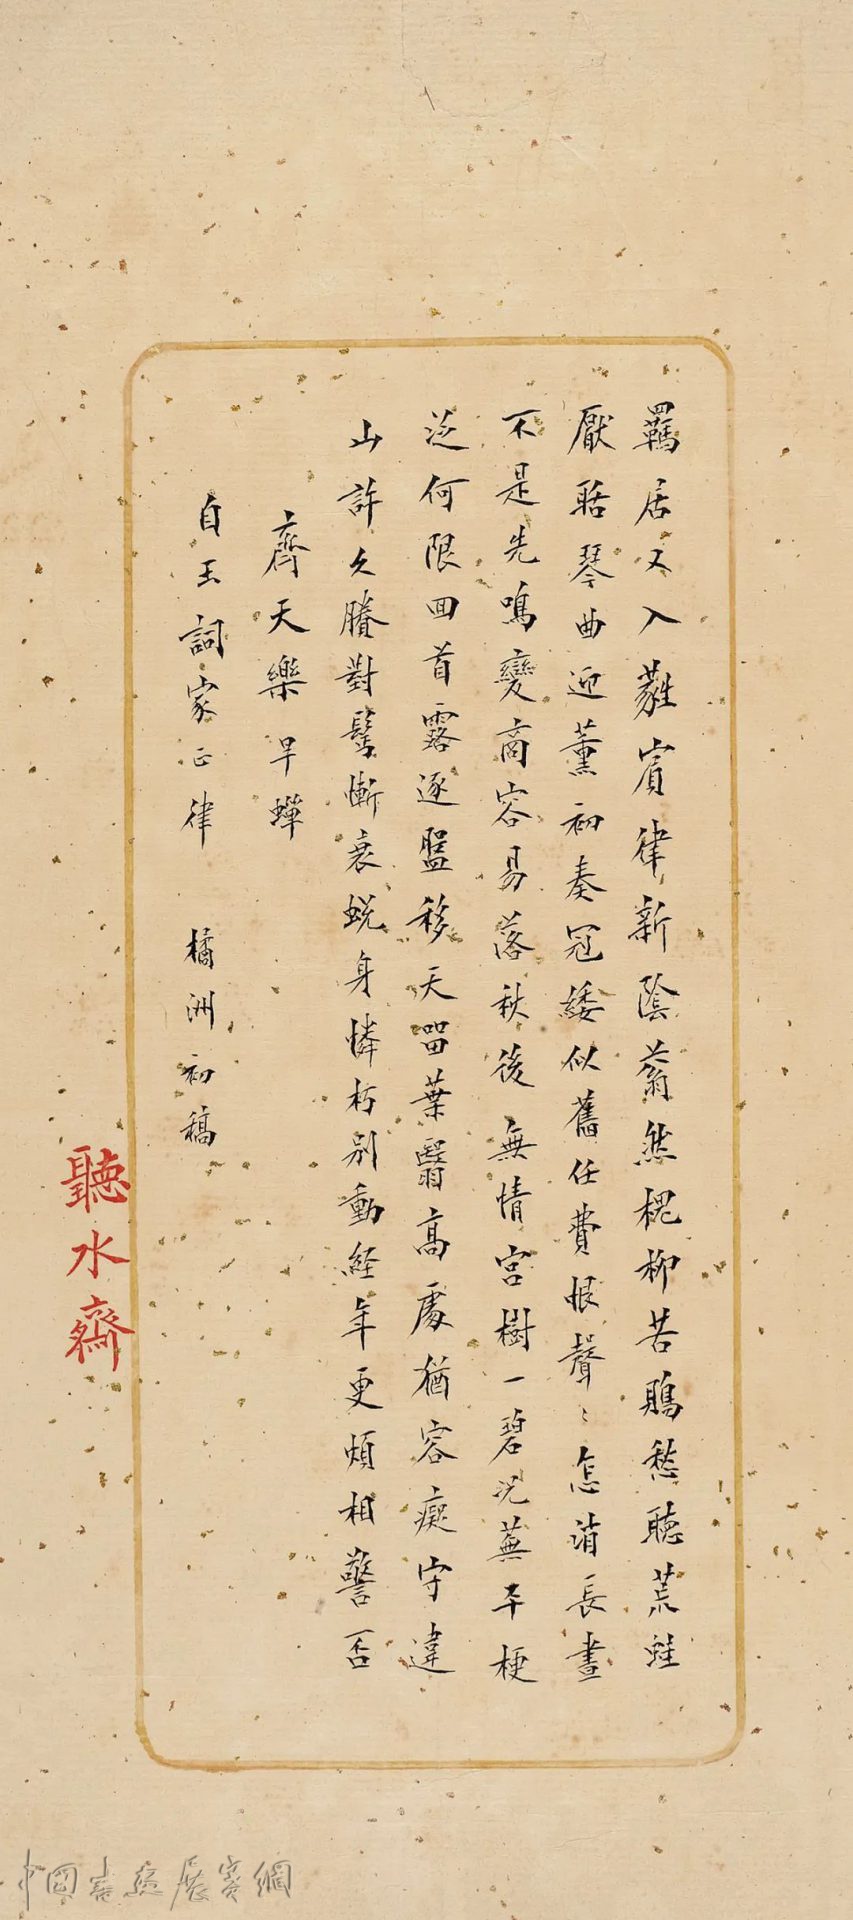 羈居又入蕤賓律新陰蓊然槐柳苦鵙愁聽荒蛙
厭聒琴曲迎薰初奏冠緌似舊任費恨聲〻怎消長晝
不是先鳴變商容易落秋後無情宮樹一碧況蕪平梗
泛何限回首露逐盤移天留葉翳高處猶容癡守違
山許久賸對鬢慚衰蛻身憐朽別動經年更煩相警否
齊天樂早蟬
自玉詞家正律 橘洲初稿
聽水齋
中國書畫展賽網